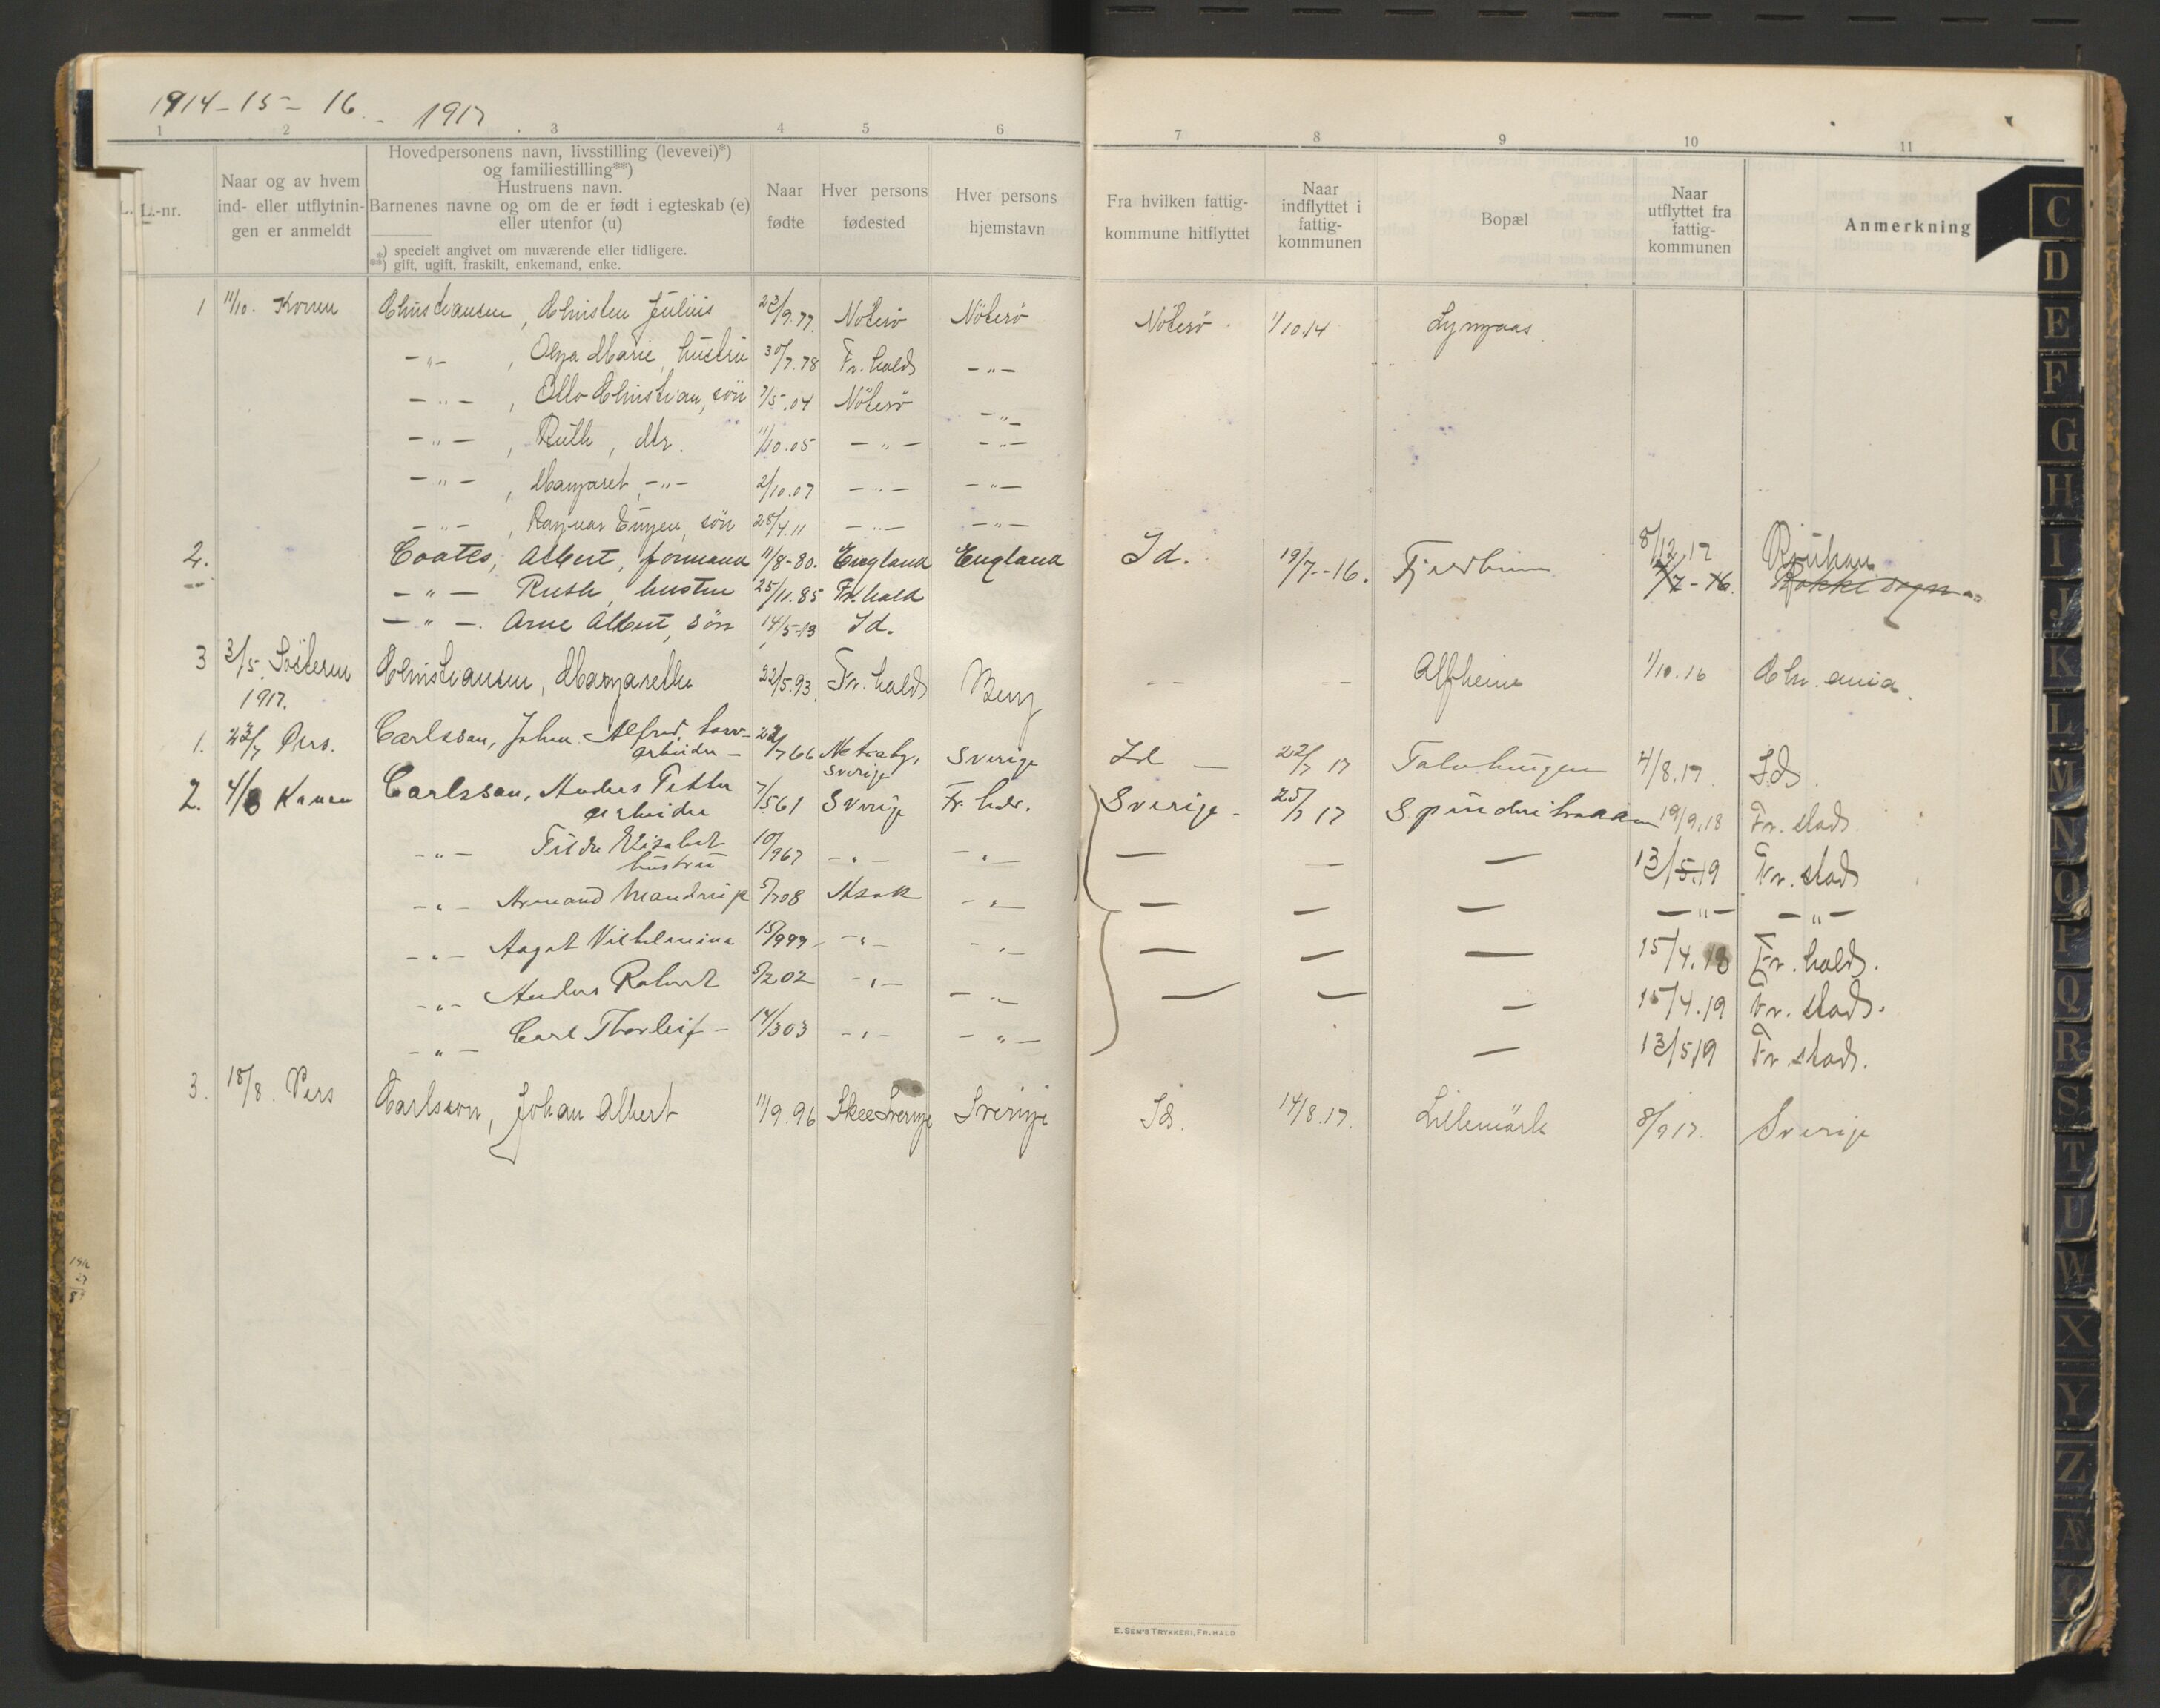 1914-15-16. - 1917
1 2 3 4 5 6 7 8 9 10 11
L. L.-nr.
Naar og av hvem ind- eller utflytnin- gen er anmeldt
Hovedpersonens navn, livsstilling (levevei)*)
og familiestilling**)
Hustruens navn.
Barnenes navne og om de er født i egteskab (e)
eller utenfor (u)
*) specielt angivet om nuværende eller tidligere.
**) gift, ugift, fraskilt, enkemand, enke.
Naar fødte
Hver persons fødested
Hver persons hjemstavn
Fra hvilken fattig- kommune hitflyttet
Naar indflyttet i fattig- kommunen
Bopæl
Naar utflyttet fra fattig- kommunen
Anmerkning
1 11/10. Christiansen, Christen Julius 23/9.77. Nöterö Nöterö Nöterö 1/10.14
-"- , Olga Marie, hustru 30/7.78 Fr.hald -"-
-"- , Otto Christian, sön 7/5.04 Nöterö -"-
-"- , Ruth, dtr. 11/10.05 -"- -"-
-"- , Margaret, -"- 2/10.07 -"- -"-
-"- , Ragnar Eugen, sön 28/4.11 -"- -"-
2. Coates, Albert, formand 11/8-80. England England Id. 19/7.-16. 8/12.17 Rjukan
7/7-16.
-"- Ruth, hustru 25/11.85 Fr.hald
-"- . Arne Albert, sön 14/5-13 Id.
3 3/5. 1917. Christiansen, Margarethe 22/5.93. Fr.hald Berg - - - Alfheim 1/10.16 Chr.ania.
1. 23/7 Pers. Carlsson, Johan Alfred,
arbeider - 22/7 66 Sverige Sverige Id - 22/7 17 4/8.17 Id.
2. 4/8 Carlsson, Anders Petter
arbeider 7/5 61 Sverige Fr.hald. Sverige - 25/7 17 19/9.18 Fr.stad.
-"- Elisabet
hustru 10/9 67 -"- -"- — — — 13/5.19 Fr.stad
-"- Armand 5/7 08 Asak -"- — — — -"- -"-
-"- Aagot Vilhelmina 15/9 99 -"- -"- — — — 15/4.18 Fr.hald.
-"- Anders Robert 5/2 02 -"- -"- — — — 15/4.19 Fr.stad.
-"- Carl Thorleif - 14/3 03 -"- -"- — 13/5.19 Fr.stad.
3. 18/8. Pers Carlsson, Johan Albert 11/9.96 Skee Sverige Sverige Id. 14/8.17. Lillemark 8/9 17. Sverige
E. SEM'S TRYKKERI, FR.HALD
C
D
E
F
G
H
I
J
K
L
M
N
O
P
Q
R
S
T
U
W
X
Y
Z
Æ
Ø